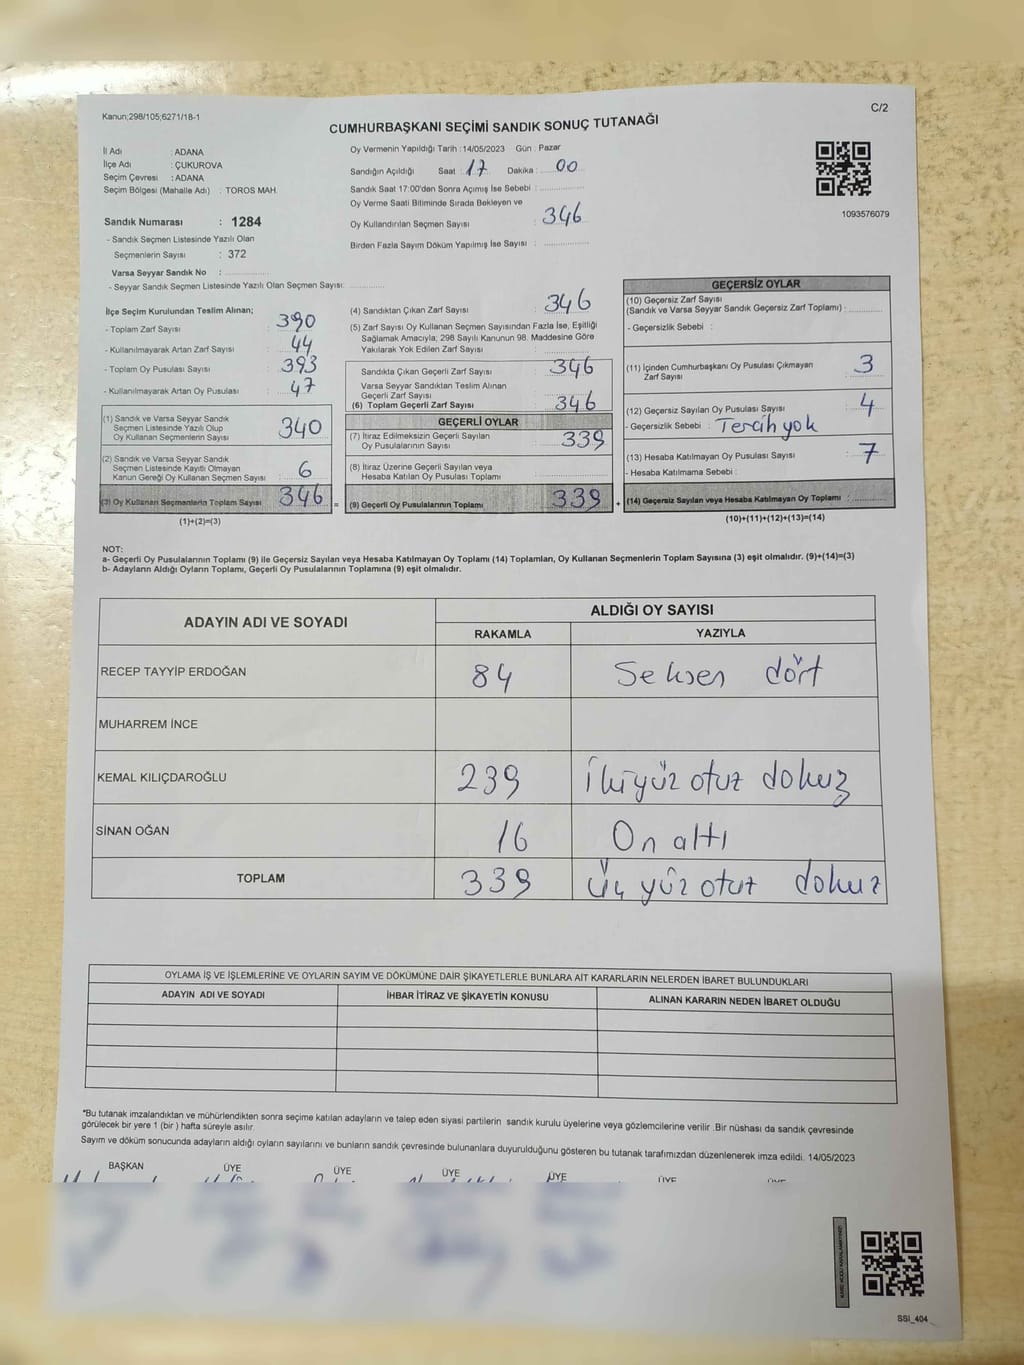 Kanun;298/105;6271/18-1
C/2
CUMHURBAŞKANI SEÇİMİ SANDIK SONUÇ TUTANAĞI
İl Adı : ADANA
İlçe Adı : ÇUKUROVA
Seçim Çevresi : ADANA
Seçim Bölgesi (Mahalle Adı) : TOROS MAH.
Sandık Numarası : 1284
- Sandık Seçmen Listesinde Yazılı Olan
Seçmenlerin Sayısı : 372
Varsa Seyyar Sandık No :
- Seyyar Sandık Seçmen Listesinde Yazılı Olan Seçmen Sayısı:
Oy Vermenin Yapıldığı Tarih :14/05/2023 Gün : Pazar
Sandığın Açıldığı Saat : 17 Dakika : 00
Sandık Saat 17:00'den Sonra Açımış İse Sebebi :
Oy Verme Saati Bitiminde Sırada Bekleyen ve
Oy Kullandırılan Seçmen Sayısı : 346
Birden Fazla Sayım Döküm Yapılmış İse Sayısı :
1093576079
İlçe Seçim Kurulundan Teslim Alınan;
- Toplam Zarf Sayısı : 390
- Kullanılmayarak Artan Zarf Sayısı : 44
- Toplam Oy Pusulası Sayısı : 393
- Kullanılmayarak Artan Oy Pusulası : 47
(1) Sandık ve Varsa Seyyar Sandık
Seçmen Listesinde Yazılı Olup
Oy Kullanan Seçmenlerin Sayısı : 340
(2) Sandık ve Varsa Seyyar Sandık
Seçmen Listesinde Kayıtlı Olmayan
Kanun Gereği Oy Kullanan Seçmen Sayısı : 6
(3) Oy Kullanan Seçmenlerin Toplam Sayısı : 346 =
(1)+(2)=(3)
(4) Sandıktan Çıkan Zarf Sayısı : 346
(5) Zarf Sayısı Oy Kullanan Seçmen Sayısından Fazla İse, Eşitliği
Sağlamak Amacıyla; 298 Sayılı Kanunun 98. Maddesine Göre
Yakılarak Yok Edilen Zarf Sayısı :
Sandıkta Çıkan Geçerli Zarf Sayısı : 346
Varsa Seyyar Sandıktan Teslim Alınan
Geçerli Zarf Sayısı :
(6) Toplam Geçerli Zarf Sayısı : 346
GEÇERLİ OYLAR
(7) İtiraz Edilmeksizin Geçerli Sayılan
Oy Pusulalarının Sayısı : 339
(8) İtiraz Üzerine Geçerli Sayılan veya
Hesaba Katılan Oy Pusulası Toplamı :
(9) Geçerli Oy Pusulalarının Toplamı : 339 +
GEÇERSİZ OYLAR
(10) Geçersiz Zarf Sayısı
(Sandık ve Varsa Seyyar Sandık Geçersiz Zarf Toplamı) :
- Geçersizlik Sebebi :
(11) İçinden Cumhurbaşkanı Oy Pusulası Çıkmayan
Zarf Sayısı : 3
(12) Geçersiz Sayılan Oy Pusulası Sayısı : 4
- Geçersizlik Sebebi : Tercih yok
(13) Hesaba Katılmayan Oy Pusulası Sayısı : 7
- Hesaba Katılmama Sebebi :
(14) Geçersiz Sayılan veya Hesaba Katılmayan Oy Toplamı :
(10)+(11)+(12)+(13)=(14)
NOT:
a- Geçerli Oy Pusulalarının Toplamı (9) ile Geçersiz Sayılan veya Hesaba Katılmayan Oy Toplamı (14) Toplamları, Oy Kullanan Seçmenlerin Toplam Sayısına (3) eşit olmalıdır. (9)+(14)=(3)
b- Adayların Aldığı Oyların Toplamı, Geçerli Oy Pusulalarının Toplamına (9) eşit olmalıdır.
ADAYIN ADI VE SOYADI
ALDIĞI OY SAYISI
RAKAMLA YAZIYLA
RECEP TAYYİP ERDOĞAN 84 Seksen dört
MUHARREM İNCE
KEMAL KILIÇDAROĞLU 239 İkiyüz otuz dokuz
SİNAN OĞAN 16 On altı
TOPLAM 339 Üç yüz otuz dokuz
OYLAMA İŞ VE İŞLEMLERİNE VE OYLARIN SAYIM VE DÖKÜMÜNE DAİR ŞİKAYETLERLE BUNLARA AİT KARARLARIN NELERDEN İBARET BULUNDUKLARI
ADAYIN ADI VE SOYADI İHBAR İTİRAZ VE ŞİKAYETİN KONUSU ALINAN KARARIN NEDEN İBARET OLDUĞU
*Bu tutanak imzalandıktan ve mühürlendikten sonra seçime katılan adayların ve talep eden siyasi partilerin sandık kurulu üyelerine veya gözlemcilerine verilir .Bir nüshası da sandık çevresinde
görülecek bir yere 1 (bir ) hafta süreyle asılır.
Sayım ve döküm sonucunda adayların aldığı oyların sayılarını ve bunların sandık çevresinde bulunanlara duyurulduğunu gösteren bu tutanak tarafımızdan düzenlenerek imza edildi. 14/05/2023
BAŞKAN ÜYE ÜYE ÜYE ÜYE ÜYE
SSI_404